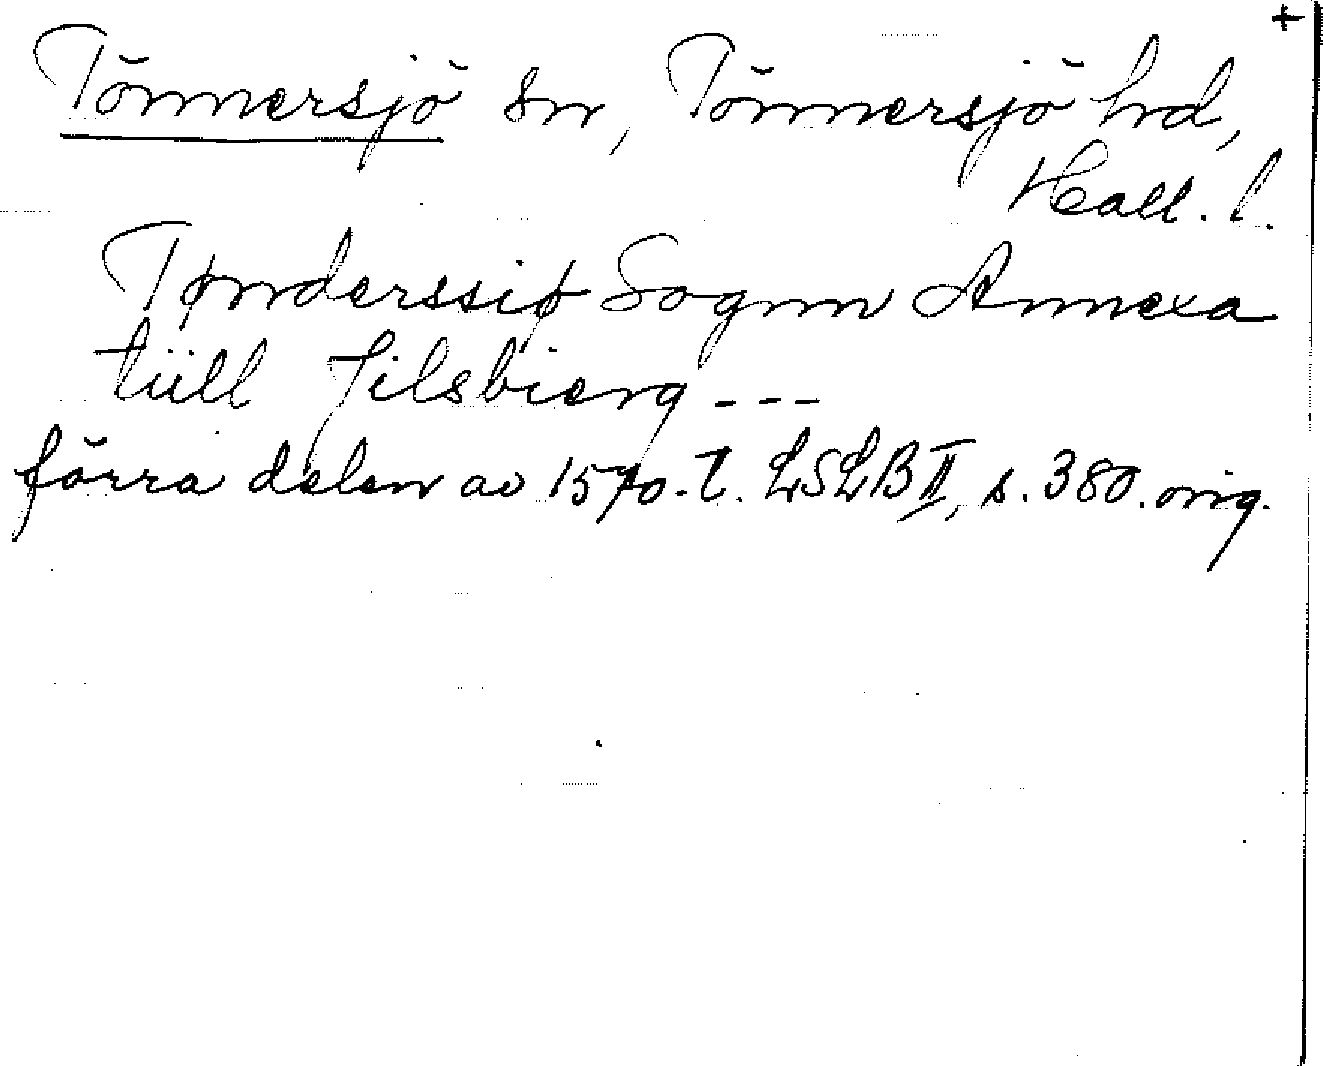 +
Tönnersjö sn, Tönnersjö hd,
Hall. l.
Tønderssiø Sognn Annexa
tiill Jilsbierg ---
förra delen av 1570-t. LSLB II, s. 380. orig.